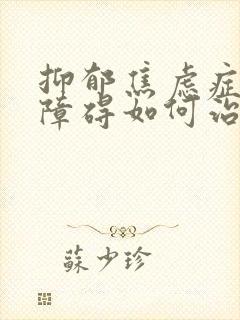 抑郁焦虑症
障碍如何治
蘇少珍